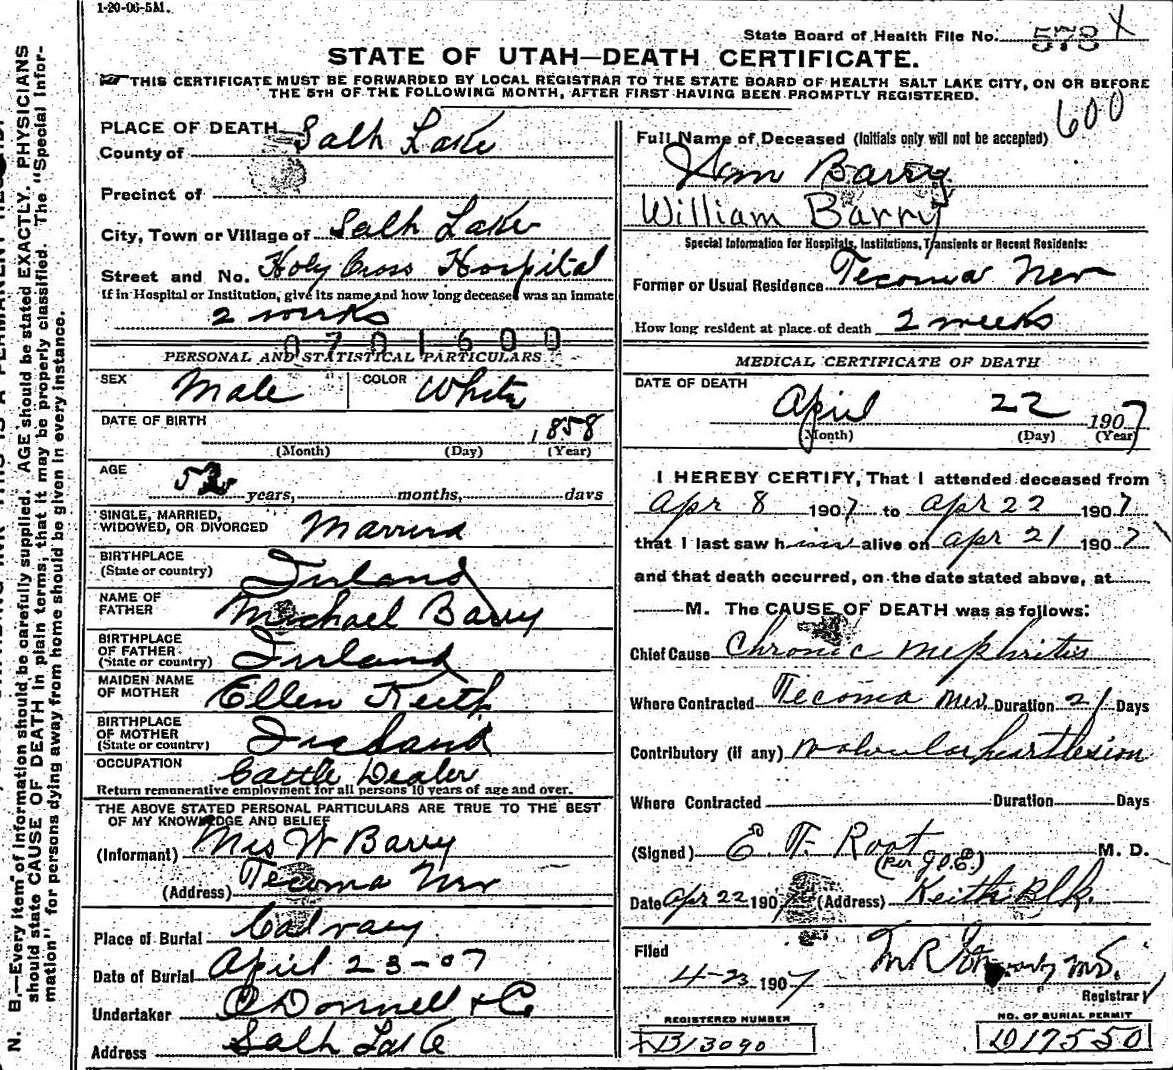 1-20-06-5M.
State Board of Health File No. 573 X
STATE OF UTAH—DEATH CERTIFICATE.
THIS CERTIFICATE MUST BE FORWARDED BY LOCAL REGISTRAR TO THE STATE BOARD OF HEALTH SALT LAKE CITY, ON OR BEFORE
THE 5TH OF THE FOLLOWING MONTH, AFTER FIRST HAVING BEEN PROMPTLY REGISTERED.
600
PLACE OF DEATH
County of Salt Lake
Precinct of
City, Town or Village of Salt Lake
Street and No. Holy Cross Hospital
If in Hospital or Institution, give its name and how long deceased was an inmate
2 weeks
0701600
PERSONAL AND STATISTICAL PARTICULARS
SEX Male COLOR White
DATE OF BIRTH 1858
(Month) (Day) (Year)
AGE
years, months, days
SINGLE, MARRIED,
WIDOWED, OR DIVORCED Married
BIRTHPLACE
(State or country) Ireland
NAME OF
FATHER Michael Barry
BIRTHPLACE
OF FATHER
(State or country) Ireland
MAIDEN NAME
OF MOTHER Ellen Keith
BIRTHPLACE
OF MOTHER
(State or country) Ireland
OCCUPATION Cattle Dealer
Return remunerative employment for all persons 10 years of age and over.
THE ABOVE STATED PERSONAL PARTICULARS ARE TRUE TO THE BEST
OF MY KNOWLEDGE AND BELIEF
(Informant) Mrs W Barry
(Address) Tecoma Nev
Place of Burial Calvary
Date of Burial April 23-07
Undertaker O'Donnell & Co
Address Salt Lake
Full Name of Deceased (Initials only will not be accepted)
Wm Barry
William Barry
Special Information for Hospitals, Institutions, Transients or Recent Residents:
Former or Usual Residence Tecoma Nev
How long resident at place of death 2 weeks
MEDICAL CERTIFICATE OF DEATH
DATE OF DEATH
April 22 1907
(Month) (Day) (Year)
I HEREBY CERTIFY, That I attended deceased from
Apr 8 1907 to Apr 22 1907
that I last saw him alive on Apr 21 1907
and that death occurred, on the date stated above, at
M. The CAUSE OF DEATH was as follows:
Chief Cause Chronic Nephritis
Where Contracted Tecoma Nev. Duration 21 Days
Contributory (if any) Valvular heart lesion
Where Contracted Duration Days
(Signed) E. F. Root M. D.
(Per J.O.E.)
Date Apr 22 1907 (Address) Keith Blk.
Filed
4-23 1907
Registrar
REGISTERED NUMBER
B13090
NO. OF BURIAL PERMIT
D17550
N. B.—Every item of information should be carefully supplied. AGE should be stated EXACTLY. PHYSICIANS
should state CAUSE OF DEATH in plain terms, that it may be properly classified. The "Special Infor-
mation" for persons dying away from home should be given in every instance.